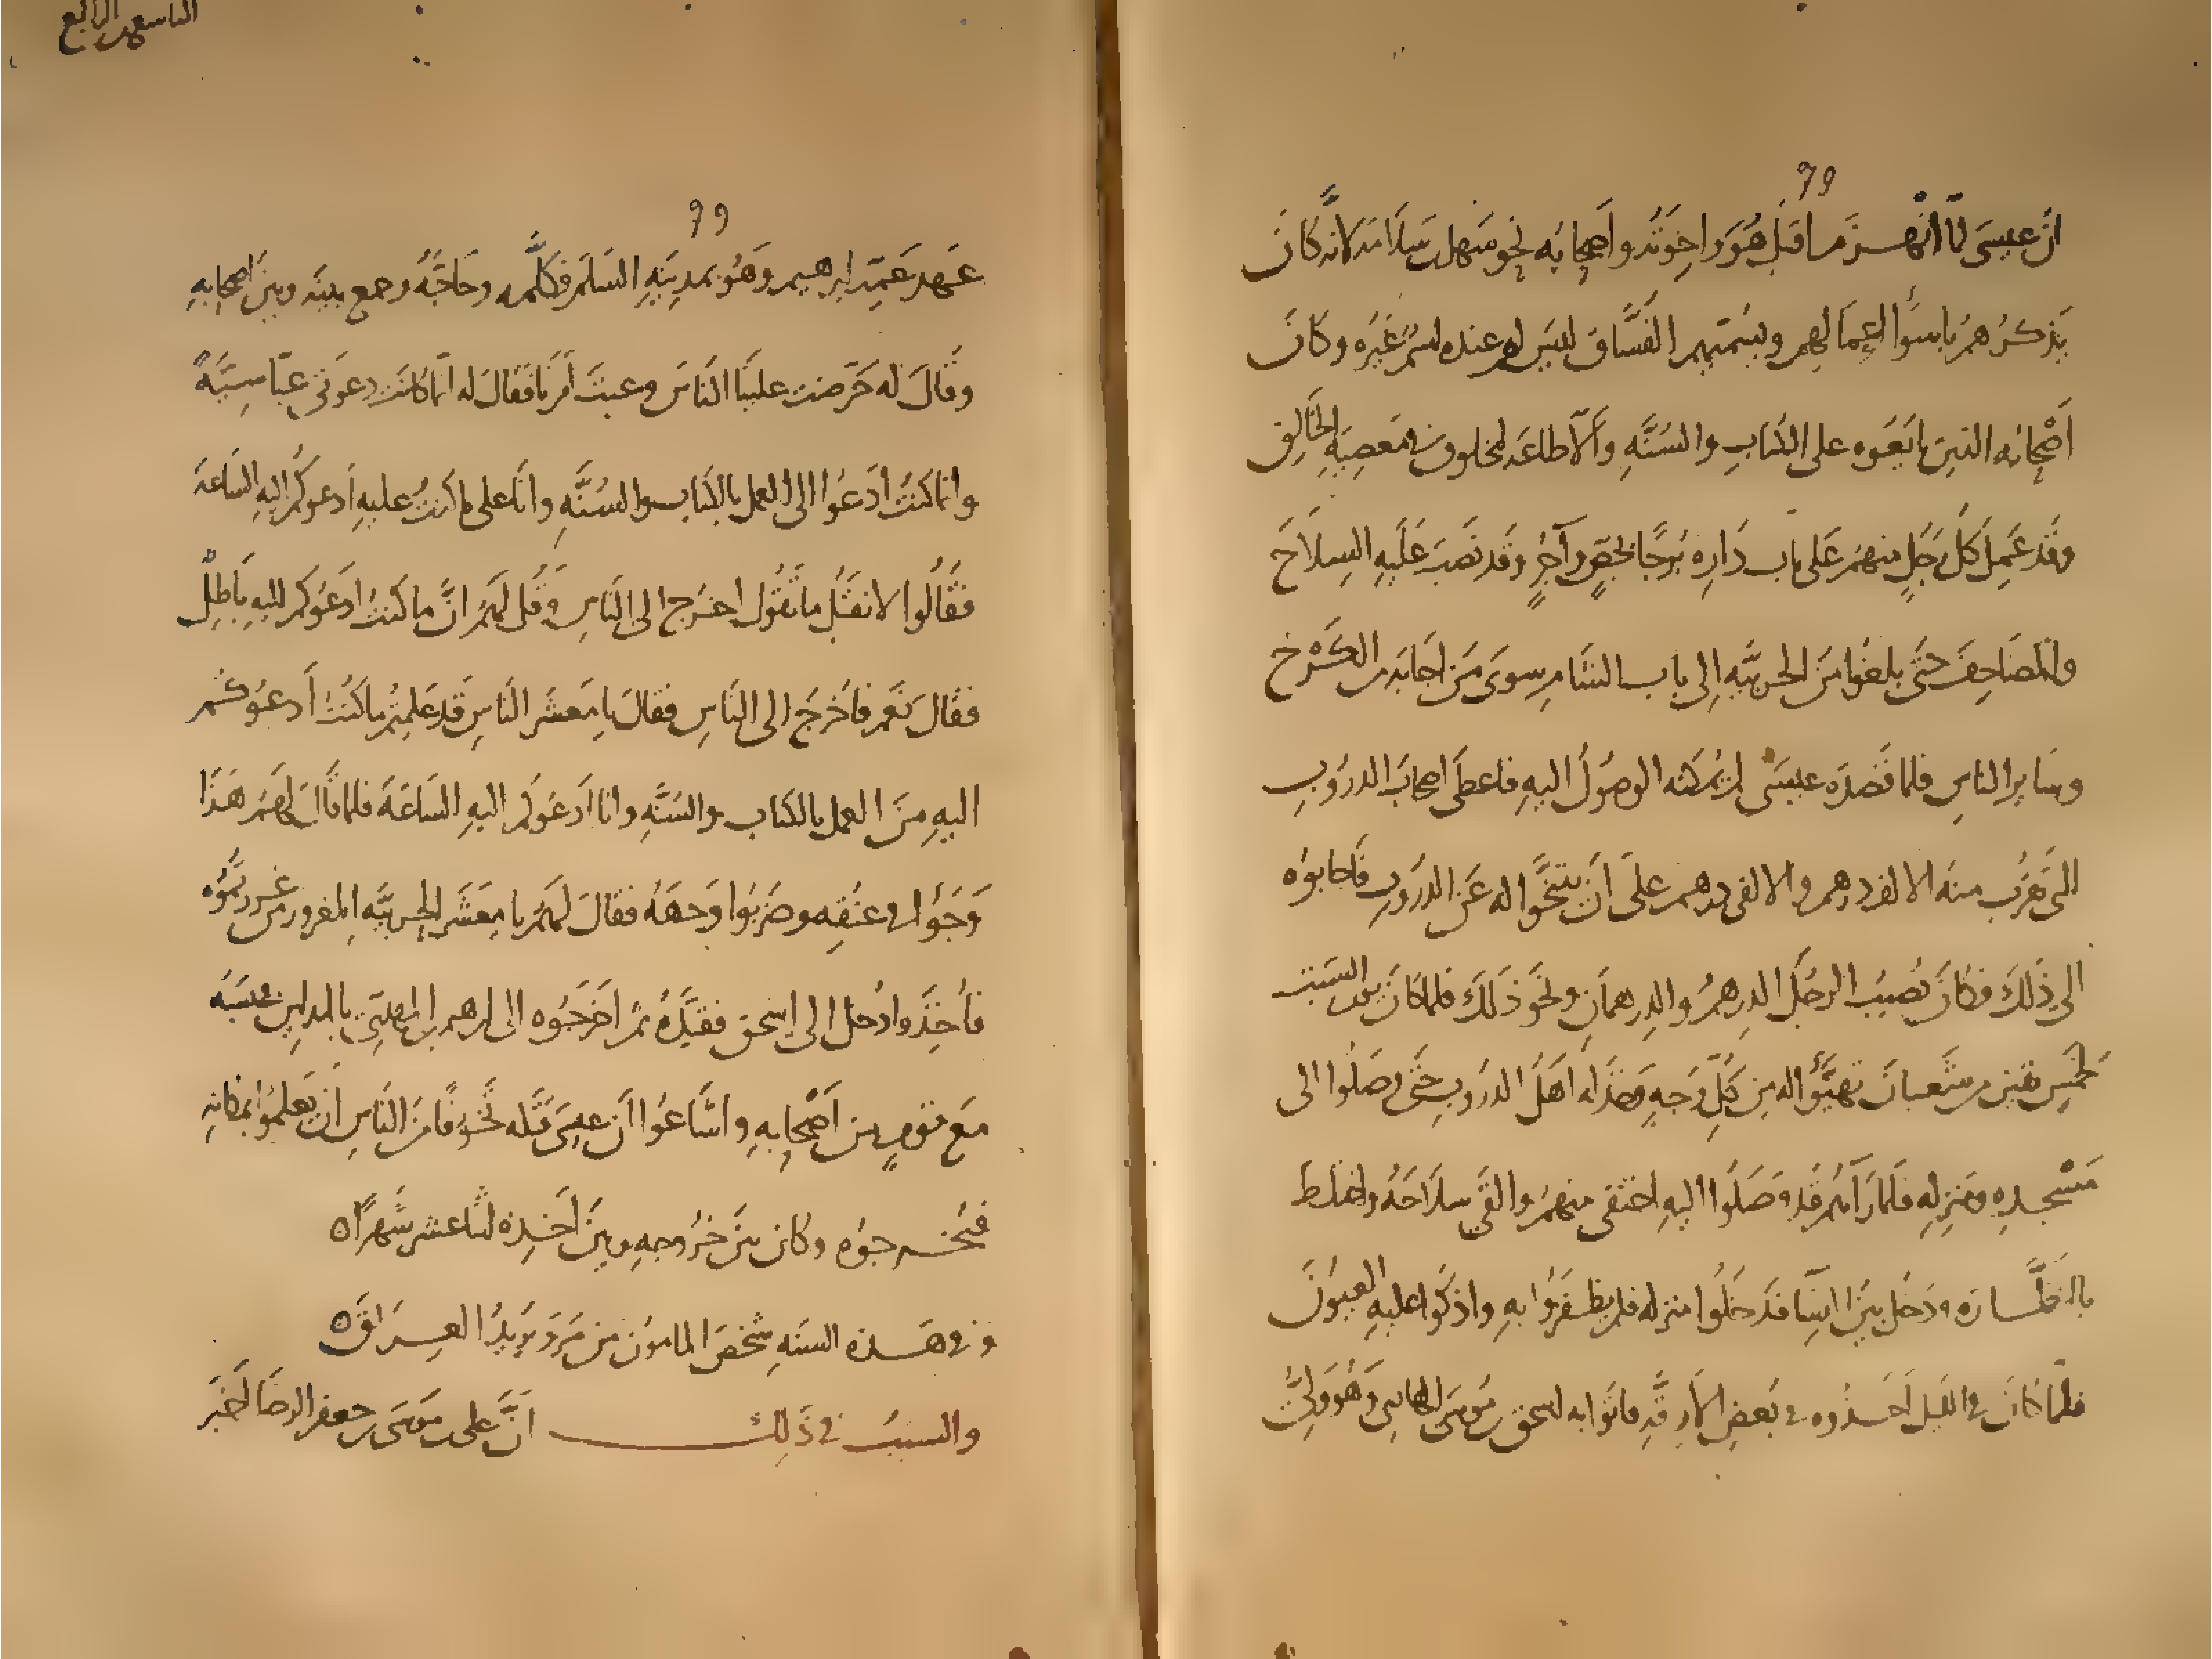 ٩٩
انّ عيسَى لمّا انْهزمَ اقبَل هُوَ واخِوَتُه واَصحابُه نحو سَهل بن سَلَامَة لانّه كانَ
يَذكرُهمُ باسوَأ اعمالهم ويسَميهم الفُسَّاق ليسَ لهم عنده اسمٌ غيَره وكانَ
اَصْحابُه الذين بايَعَوه على الكتابِ والسُنَّهِ وَألّا طاعَة لمخلوق فى مَعصِيَهِ الخالِق
وقَد عَمِلَ كلُ رَجُلٍ منهمُ عَلى باب دَارِه بُرجًا بجصٍّ وآجُرٍ وقَد نصَبَ عَلَيهِ السِلَاحَ
والمصَاحِفَ حتَّى بلغوُا منَ الحربيَّهِ اِلى باب الشامِ سِوىَ مَن اَجابَه من الكَرْخ
وسَاير الناسِ فلما قَصَدَه عيسَى لم يُمكنه الوصُوُلُ اليهِ فاعطىَ اصحابَ الدرُوبِ
التى تقرُب منهُ الالف درهم والالفى درهم على اَن يتنَحَّوا له عَن الدرُوبِ فاَجابوُه
الى ذَلكَ فكانَ نصُيبُ الرجُل الدِرهمُ والدِرهمانِ ونحوَ ذَلكَ فلما كانَ يوم السَبت
لخمسِ بقين من شَعبانَ تهيَّؤُا له مِن كلِّ وَجهٍ وخذَله اَهلُ الدرُوبِ حتَّى وصَلُوا الى
مَسْجدِه ومنزِلِه فلمَا رَآهُم قَد وَصَلُوا اليهِ اختَفى منهمُ والقَى سلاَحَهُ واختلَط
بالنظَّارَه ودَخل بيَن النسَآ فدَخلُوا منزله فلم يظفَروُا بهِ واذكَوا عليهِ العيوُنَ
فلمّا كانَ فى الليل اَخذُوه فى بَعضِ الدروب فاتوا به اسحق بن مُوسَى الهادى وَهُوَ ولىُّ
٩٩
عَهد عَمّه ابرهيم وهُوَ بمدينَهِ السَلم فكلَّمه وحَاجَّهُ وجمع بينَه وبينَ اصحابهِ
وقَالَ له حَرّضت علينَا الناسَ وعبتَ اَمرنَا فقَالَ له انّما كانَت دعوَتى عبّاسِيَّهً
وانما كنتُ ادَعُوا الى العمل بالكتاب والسُنَّهِ وانَا على ما كنتُ عليهِ اَدعوكُم اليهِ السَاعَةَ
فقَالُوا لا نقبَلُ ما تقُول اخرُج الى الناسِ وقُل لهَمُ انَّ ما كنتُ ادَعُوكم اليهِ باَطِلٌ
فقَالَ نعَم فاُخرَجَ الى الناسِ فقالَ يا مَعشَر الناسِ قَد عَلمِتُم ما كنتُ اَدعوُكُم
اليهِ منَ العمل بالكتاب والسُنَّهِ وانا اَدعُوكُم اليهِ السَاعَةَ فلما قالَ لَهمُ هَذَا
وَجَؤُا فى عنُقِه وضرَبوُا وَجهَهُ فقالَ لهَمُ يا معِشَر الحربيَّهِ المغرور من غررتموُه
فاُخِذَ واُدخلَ الى اِسحق فقَيَّدَهُ ثم اَخرَجُوه الى ابرهيم بن المهدى بالمدائِن فحبسَهُ
مَعَ قومٍ من اَصْحابهِ واَشاعُوا اَن عيسى قتَله تخوّفًا منَ الناسِ اَن يَعلموُا بمكانِهِ
فيُخرجوُه وكانَ بينَ خرُوجهِ وبينَ اَخذِه اثنا عشر شَهرًاه
وفى هَذه السنهِ شخصَ المامون من مَروَ يرُيدُ العِرَاقَه
والسببُ فى ذَلِكَ اَنَّ على بن موُسَى بن جعفر الرضَا اَخبَر